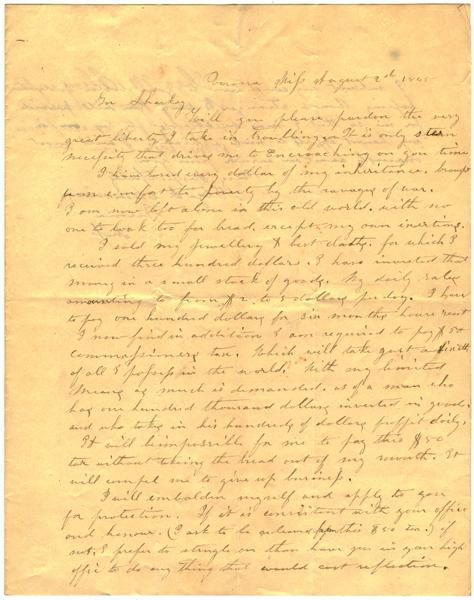 Verona Miss August 2nd 1865
Gov Sharkey
Will you please pardon the very
great liberty I take in troubling you It is only stern
necessity that drives me to Encroaching on you time
I have lost every dollar of my inheritance. brought
from comfort to poverty by the ravages of war.
I am now left alone in this old world. with no
one to look too for bread. except my own exertions.
I sold my jewellery & best clothes. for which I
received three hundred dollars. I have invested that
money in a small stock of goods. My daily sales
amounting to from $2. to 5 dollars per day. I have
to pay one hundred dollars for six months house rent
I now find in addition I am required to pay $50
commissioners tax. Which will take quit a
of all I possess in the world. With my limited
Means as much is demanded. as of a man who
has one hundred thousand dollars invested in goods.
and who takes in his hundreds of dollars proffit daily.
It will be impossible for me to pay this $50
tax without taking the bread out of my mouth. It
will compel me to give up business.
I will embolden myself and apply to you
for protection. If it is consistent with your office
and honour. (I ask to be released from this $50 tax.) if
not. I prefer to strugle on than have you in your high
offic to do any thing that would cost reflection.